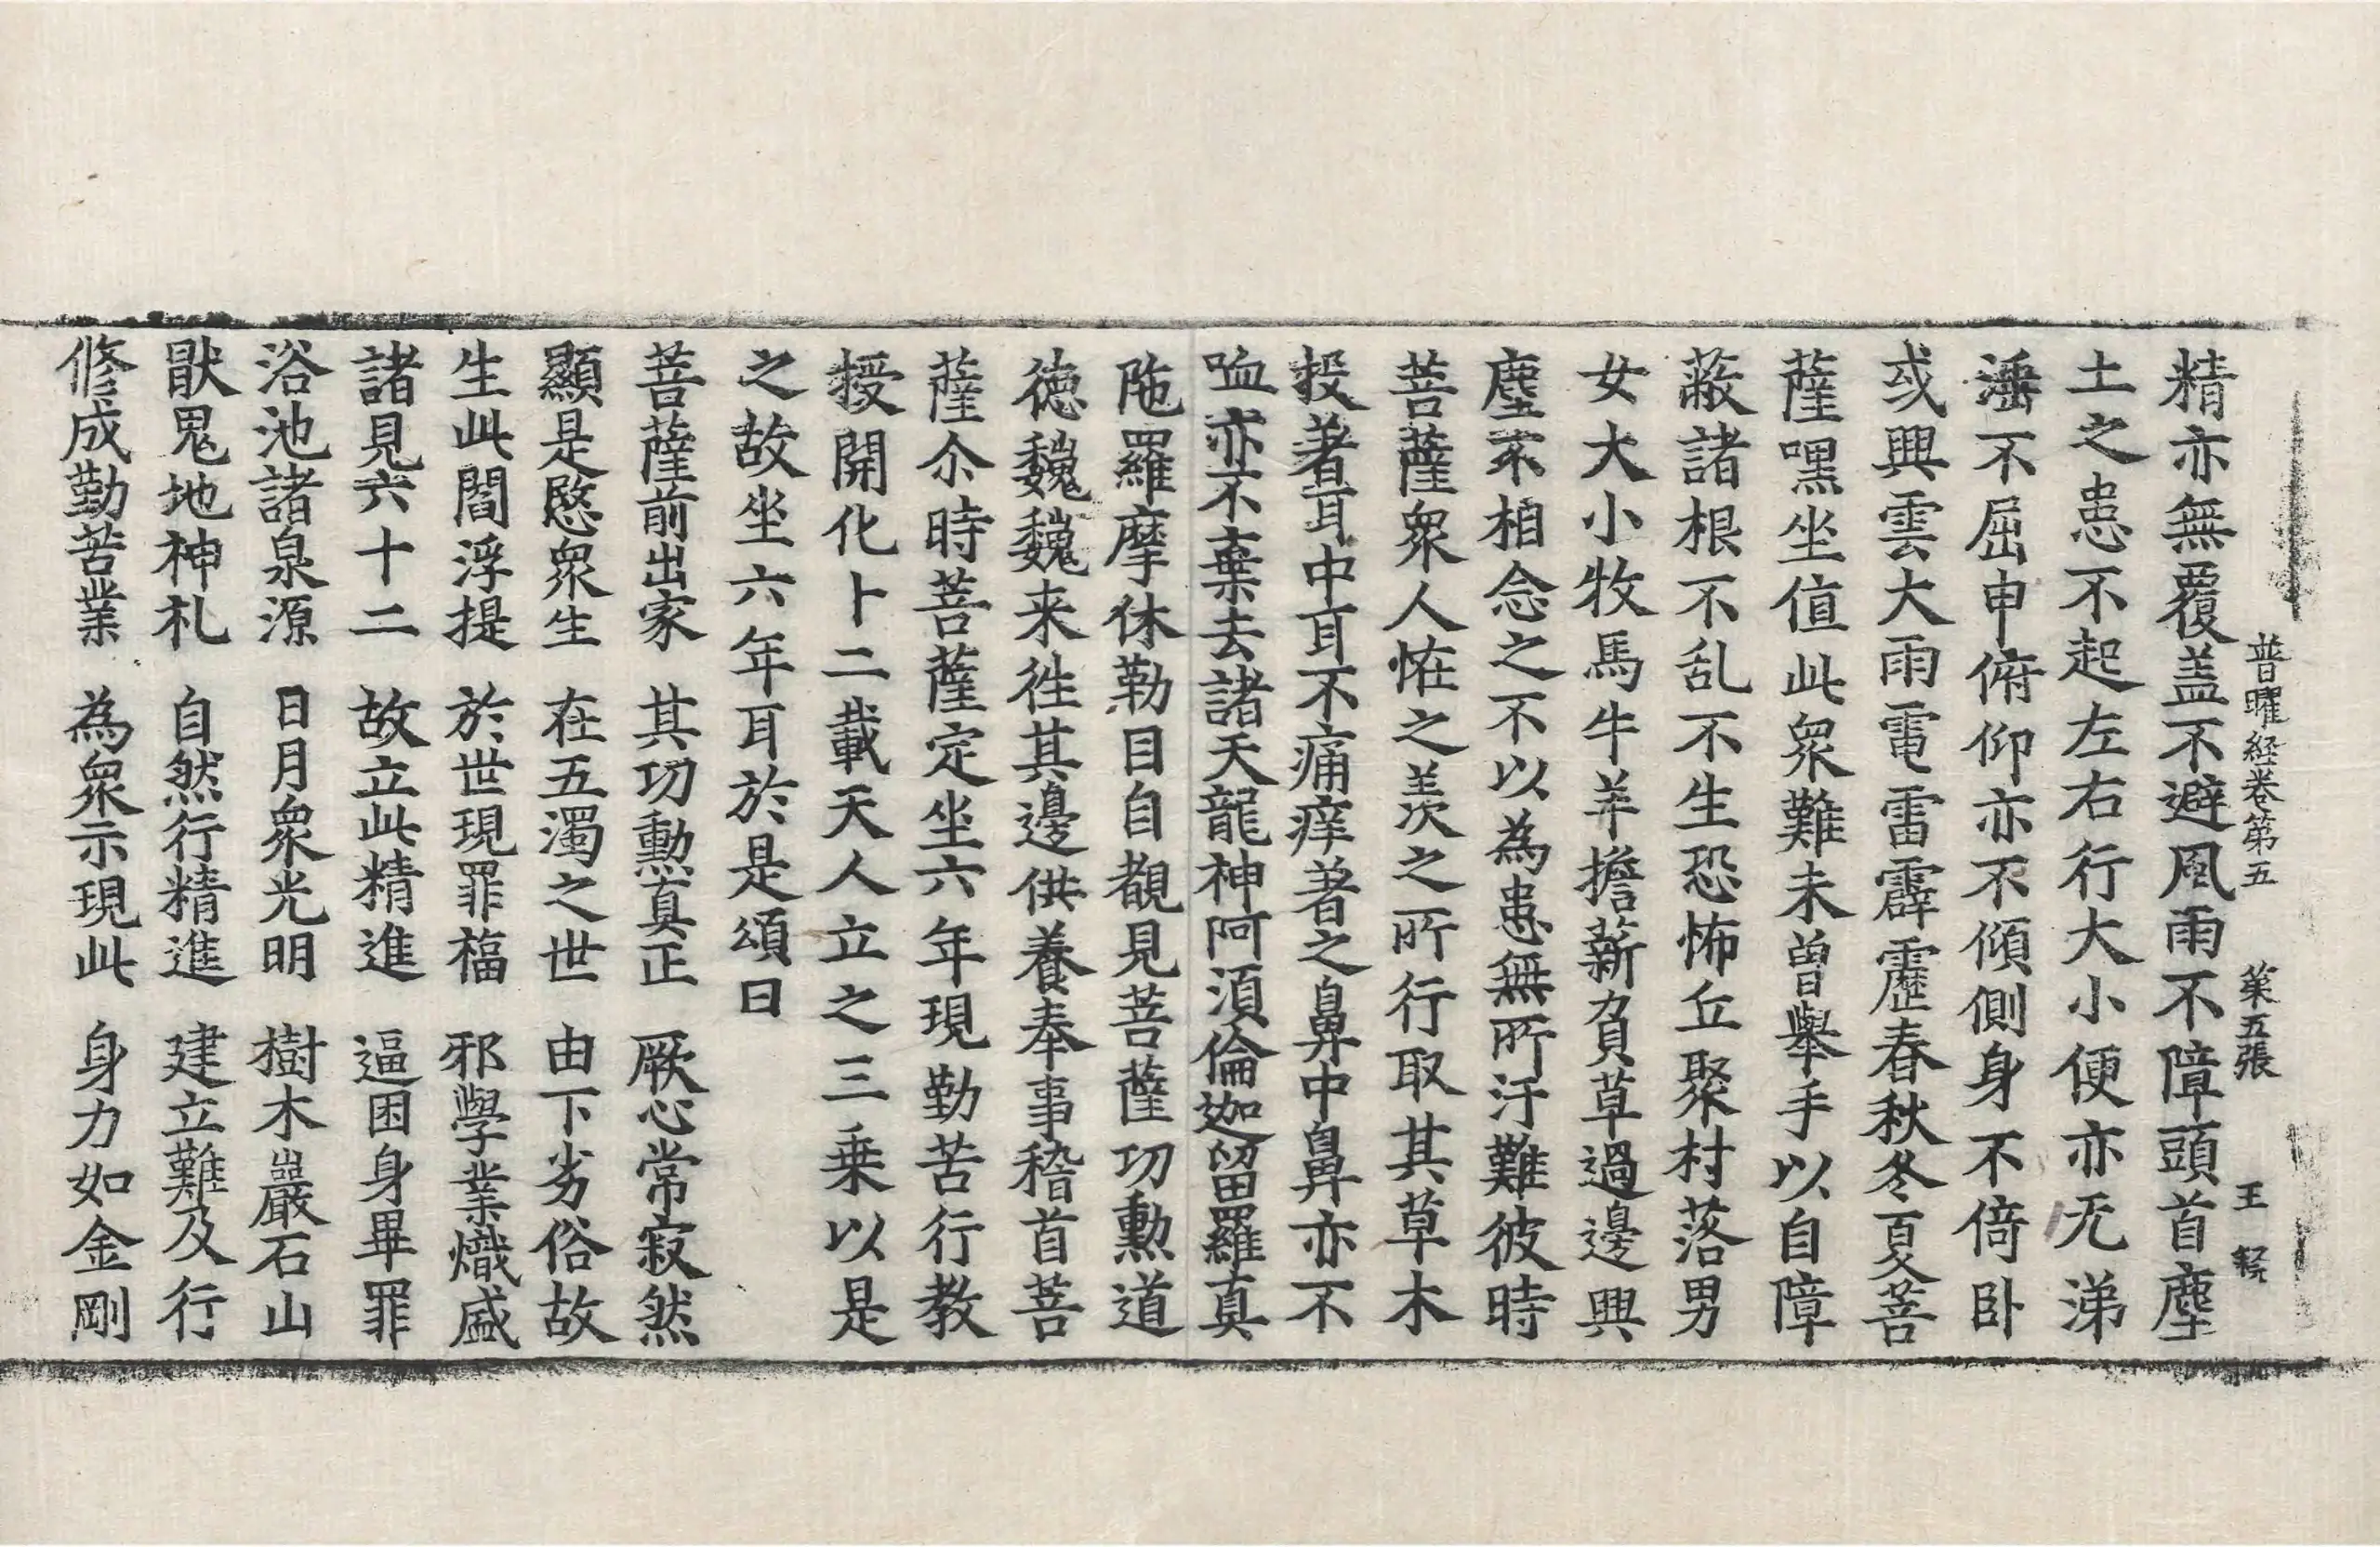 普曜経卷第五 第五張 王
精亦無覆盖不避風雨不障頭首塵
土之患不起左右行大小便亦无涕
不屈申俯仰亦不傾側身不倚卧
或興雲大雨電雷霹靂春秋冬夏菩
薩嘿坐值此衆難未曾舉手以自障
蔽諸根不乱不生恐怖丘聚村落男
女大小牧馬牛羊擔薪負草過邊興
塵不相念之不以為患無所汙難彼時
菩薩衆人恠之羨之所行取其草木
投著耳中耳不痛痒著之鼻中鼻亦不
嗌亦不棄去諸天龍神阿須倫迦留羅真
陁羅摩休勒目自覩見菩薩功勲道
徳魏魏来徃其邊供養奉事稽首菩
薩尒時菩薩定坐六年現勤苦行教
授開化十二載天人立之三乗以是
之故坐六年耳於是頌曰
菩薩前出家 其功勲真正 厥心常寂然
顯是愍衆生 在五濁之世 由下劣俗故
生此閻浮提 於世現罪福 邪學業熾盛
諸見六十二 故立此精進 逼困身畢罪
浴池諸泉源 日月衆光明 樹木巖石山
猒鬼地神礼 自然行精進 建立難及行
修成勤苦業 為衆示現此 身力如金剛